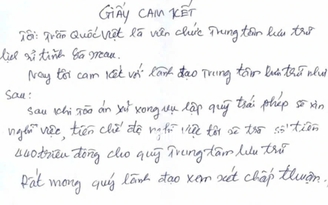 GIẤY CAM KẾT
Tôi: Trần Quốc Việt là viên chức Trung tâm lưu trữ
lịch sử tỉnh Cà Mau.
Nay tôi cam kết với lãnh đạo Trung tâm lưu trữ như
sau:
Sau khi tòa án xử xong vụ lập quỹ trái phép sẽ xin
nghỉ việc, tiền chế độ nghỉ việc tôi sẽ trả số tiền
440 triệu đồng cho quỹ Trung tâm lưu trữ
Rất mong quý lãnh đạo xem xét chấp thuận.